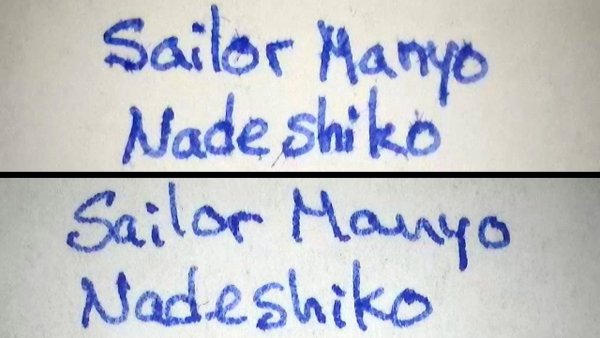 Sailor Manyo
Nadeshiko
Sailor Manyo
Nadeshiko